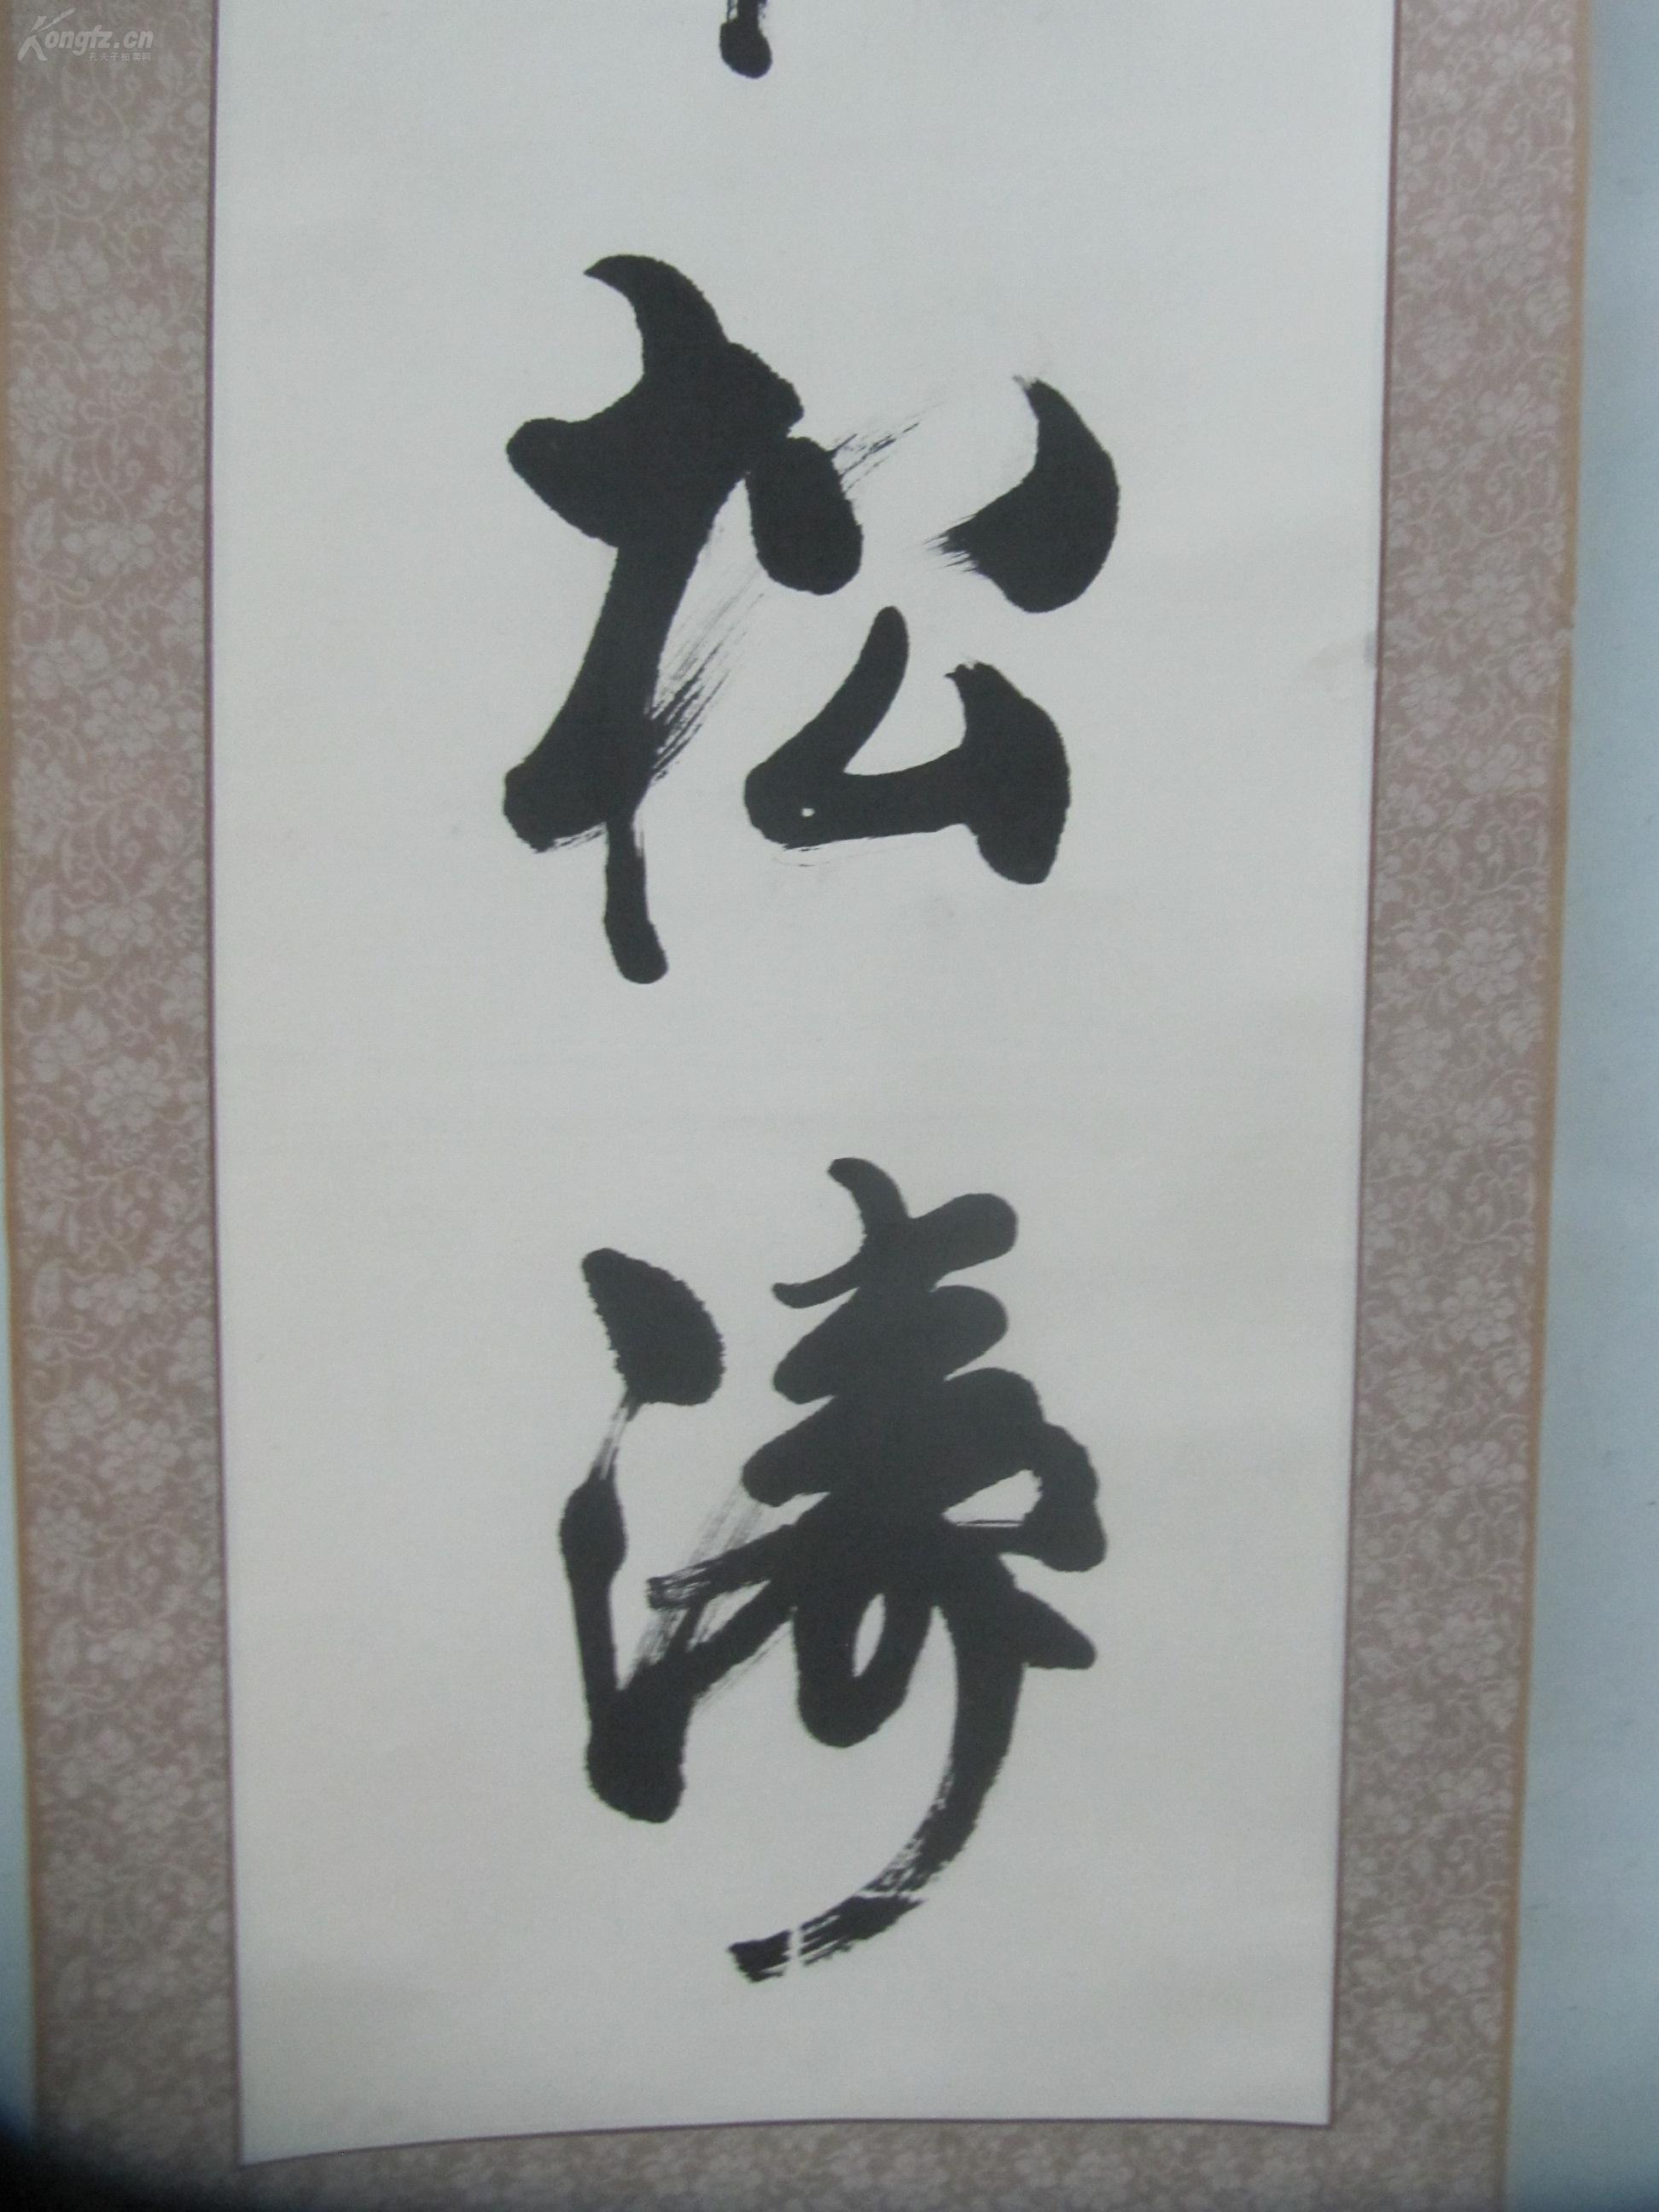 Kongfz.cn
孔夫子拍卖网
松
涛